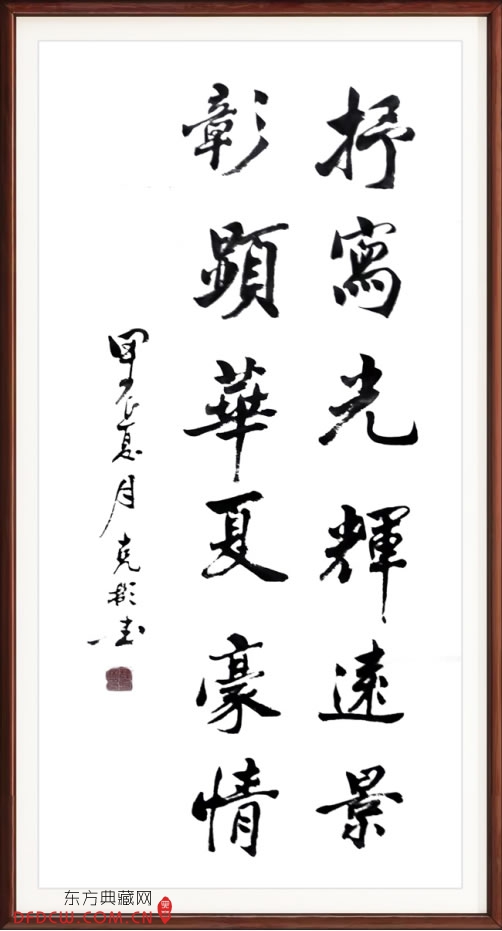 抒寫光輝遠景
彰顯華夏豪情
甲辰夏月克彬书
东方典藏网
DFDCW.COM.CN